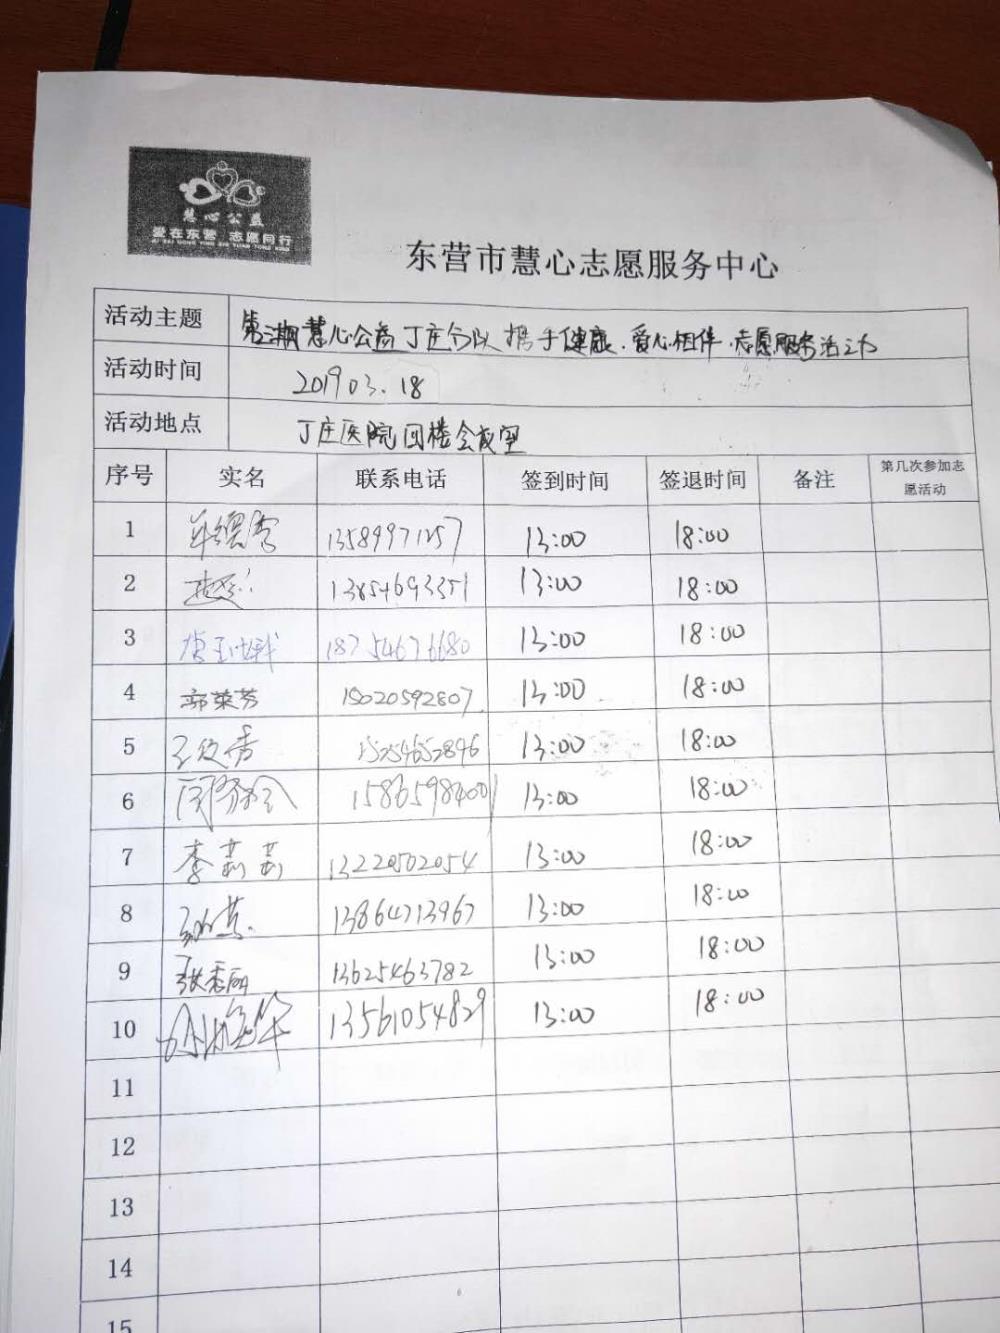 慧心公益
爱在东营 志愿同行
AI ZAI DONG YING ZHI YUAN TONG XING
东营市慧心志愿服务中心
活动主题 第三期慧心公益丁庄分队携手健康.爱心相伴.志愿服务活动
活动时间 2019 03.18
活动地点 丁庄医院四楼会议室
序号 实名 联系电话 签到时间 签退时间 备注 第几次参加志愿活动
1 13589971257 13:00 18:00
2 13854693351 13:00 18:00
3 18754676680 13:00 18:00
4 郭荣芳 15020592807 13:00 18:00
5 15254652896 13:00 18:00
6 15865984001 13:00 18:00
7 李莉莉 13220502054 13:00 18:00
8 13864713967 13:00 18:00
9 张秀丽 13625463782 13:00 18:00
10 13561054829 13:00 18:00
11
12
13
14
15